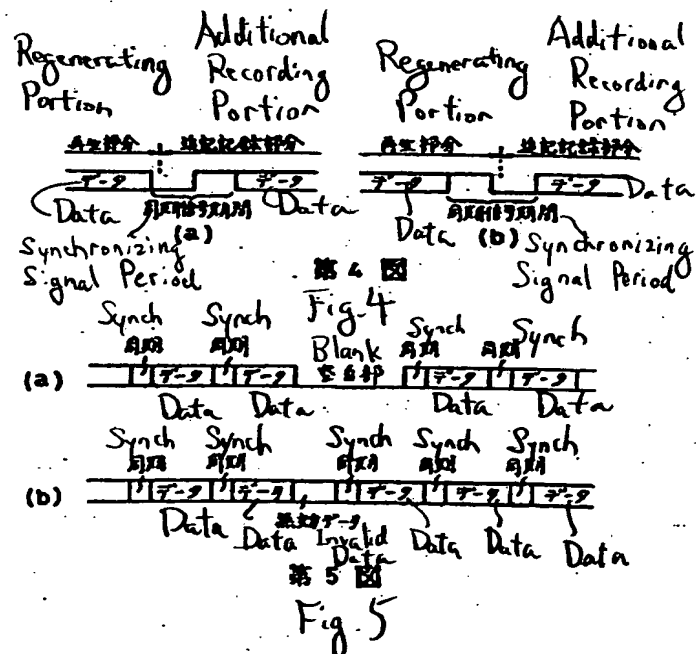 Regenerating Portion
Additional Recording Portion
Regenerating Portion
Additional Recording Portion
再生部分 追記記録部分
再生部分 追記記録部分
データ データ
データ データ
Data Data
Data Data
同期信号期間
同期信号期間
(a)
(b)
Synchronizing Signal Period
Synchronizing Signal Period
第 4 図
Fig. 4
Synch Synch Blank Synch Synch
同期 同期 空白部 同期 同期
(a) データ データ データ データ
Data Data Data Data
Synch Synch Synch Synch Synch
同期 同期 同期 同期 同期
(b) データ データ データ データ データ
Data Data Invalid Data Data Data Data
無効データ
第 5 図
Fig. 5